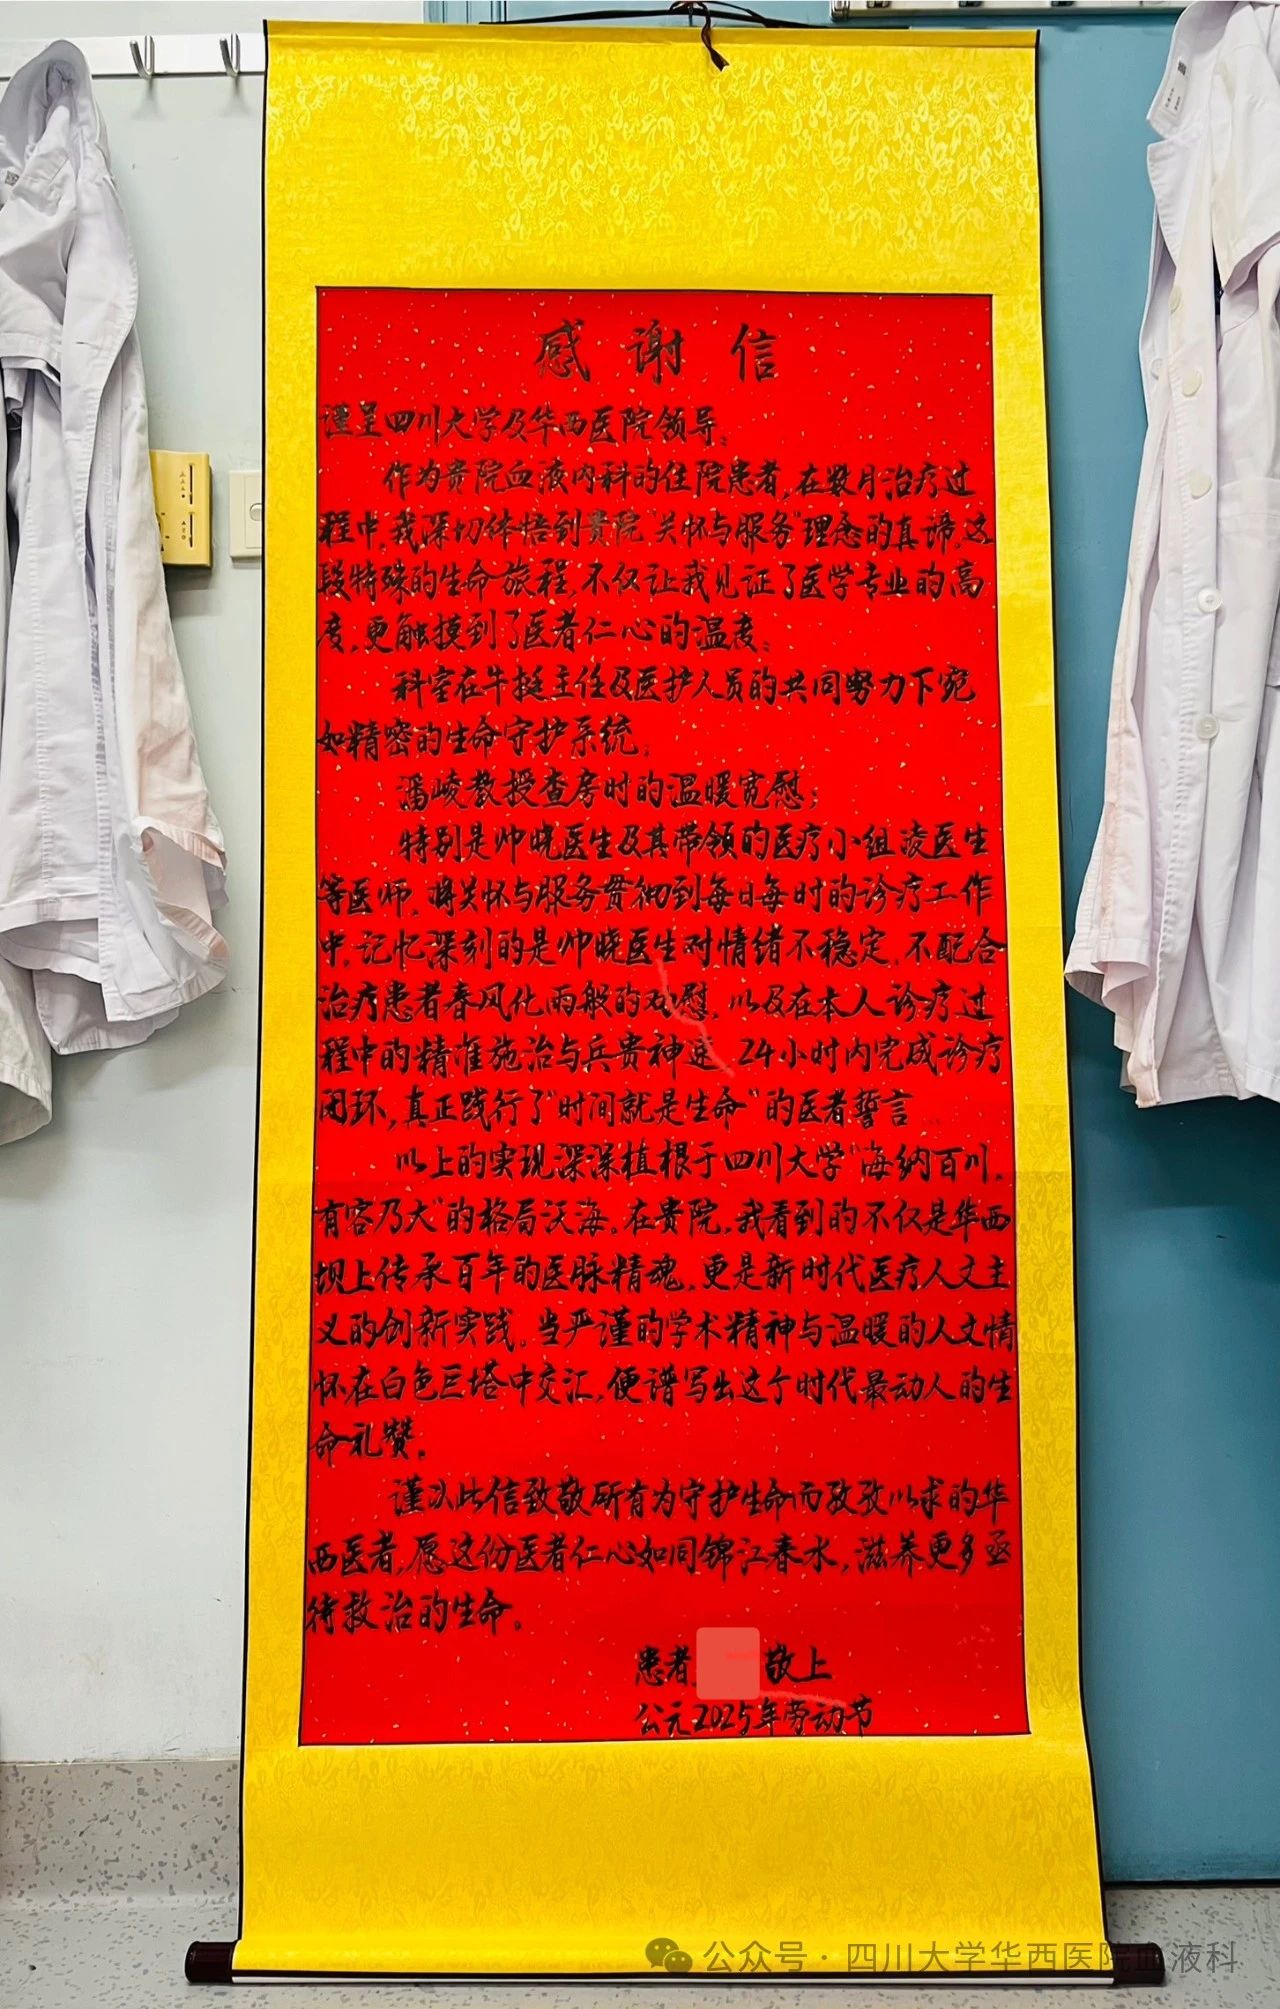 感谢信
谨呈四川大学及华西医院领导：
作为贵院血液内科的住院患者，在数月治疗过
程中，我深切体悟到贵院“关怀与服务”理念的真谛。这
段特殊的生命旅程，不仅让我见证了医学专业的高
度，更触摸到了医者仁心的温度。
科室在牛挺主任及医护人员的共同努力下宛
如精密的生命守护系统。
潘崚教授查房时的温暖宽慰；
特别是帅晓医生及其带领的医疗小组凌医生
等医师，将关怀与服务贯彻到每日每时的诊疗工作
中，记忆深刻的是帅晓医生对情绪不稳定，不配合
治疗患者春风化雨般的劝慰，以及在本人诊疗过
程中的精准施治与兵贵神速 24小时内完成诊疗
闭环，真正践行了“时间就是生命”的医者誓言
以上的实现深深植根于四川大学“海纳百川，
有容乃大”的格局沃海。在贵院，我看到的不仅是华西
坝上传承百年的医脉精魂，更是新时代医疗人文主
义的创新实践。当严谨的学术精神与温暖的人文情
怀在白色巨塔中交汇，便谱写出这个时代最动人的生
命礼赞。
谨以此信致敬所有为守护生命而孜孜以求的华
西医者，愿这份医者仁心如同锦江春水，滋养更多亟
待救治的生命。
患者 敬上
公元2025年劳动节
公众号·四川大学华西医院血液科